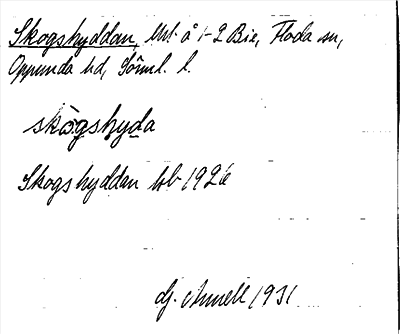 Skogshyddan, Utj. å 1-2 Bie, Floda sn,
Oppunda hd, Södml. l.
skògshyda
Skogshyddan hb 1926
Gj. Arnell 1931